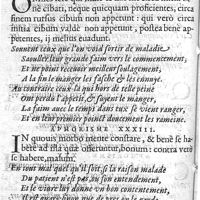 One cibati, neque quicquam proficientes, circa
finem rursus cibum non appetunt: qui verò circa
initia cibum valdè non appetunt, postea benè ap-
petentes, ij melius euadunt.
Souuent ceux que l'on void sortir de maladie
Saouller leur grande faim vers le commencement,
Et ne point receuoir meilleur soulagement,
A la fin le manger les fasche & les ennuye.
Au contraire ceux-là qui hors de telle peine
Ont perdu l'appetit, & fuyent le manger,
La faim auec le temps dans eux se vient ranger,
Et en leur premier point doucement les rameine.
APHORISME XXXIII.
IN quouis morbo mente constare, & benè se ha-
bere ad ea quæ offeruntur, bonum: contra verò
se habere, malum.
En tout mal quel qu'il soit, si la raison malade
Du patient n'est pas en son entendement,
Et le viure luy donne vn bon contentement,